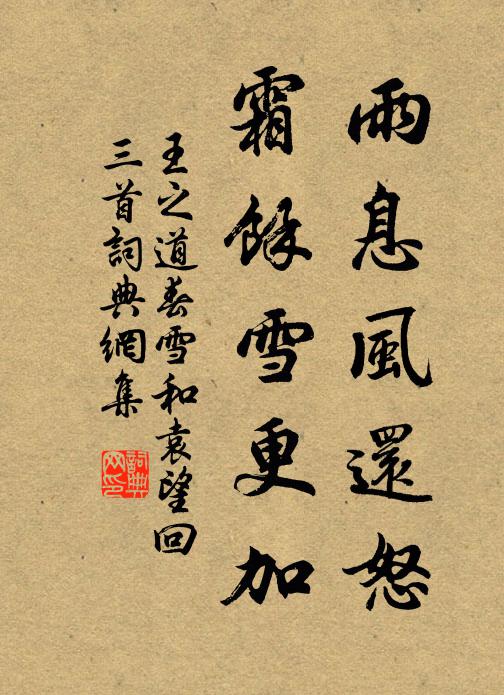 雨息風還怒
霜餘雪更加
王之道春雪和袁望回
三首詞典網集
詞典网印